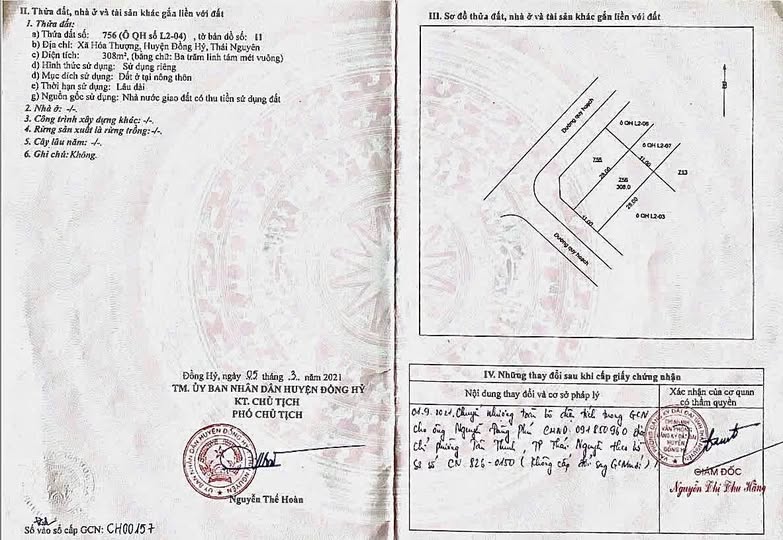 II. Thửa đất, nhà ở và tài sản khác gắn liền với đất
1. Thửa đất:
a) Thửa đất số: 756 (Ô QH số L2-04) , tờ bản đồ số: 11
b) Địa chỉ: Xã Hóa Thượng, Huyện Đồng Hỷ, Thái Nguyên
c) Diện tích: 308m², (bằng chữ: Ba trăm linh tám mét vuông)
d) Hình thức sử dụng: Sử dụng riêng
đ) Mục đích sử dụng: Đất ở tại nông thôn
e) Thời hạn sử dụng: Lâu dài
g) Nguồn gốc sử dụng: Nhà nước giao đất có thu tiền sử dụng đất
2. Nhà ở: -/-.
3. Công trình xây dựng khác: -/-.
4. Rừng sản xuất là rừng trồng:-/-.
5. Cây lâu năm: -/-.
6. Ghi chú: Không.
Đồng Hỷ, ngày 05 tháng .3. năm 2021
TM. ỦY BAN NHÂN DÂN HUYỆN ĐỒNG HỶ
KT. CHỦ TỊCH
PHÓ CHỦ TỊCH
Nguyễn Thế Hoàn
Số vào sổ cấp GCN: CH00157
III. Sơ đồ thửa đất, nhà ở và tài sản khác gắn liền với đất
B
Đường quy hoạch
ô QH L2-06
ô QH L2-07
755
11.00
713
28.00
756
308.0
28.00
11.00
ô QH L2-03
Đường quy hoạch
IV. Những thay đổi sau khi cấp giấy chứng nhận
Nội dung thay đổi và cơ sở pháp lý
Xác nhận của cơ quan
có thẩm quyền
Chuyển nhượng toàn bộ diện tích trong GCN
cho ông Nguyễn CMND: 091850960 địa
chỉ phường Tân Thịnh, TP Thái Nguyên theo hồ
sơ số CN 826-0150 (Không cấp đổi sang GCN mới)
CHI NHÁNH
VĂN PHÒNG
ĐĂNG KÝ ĐẤT ĐAI
HUYỆN
ĐỒNG HỶ
GIÁM ĐỐC
Nguyễn Thị Thu Hằng